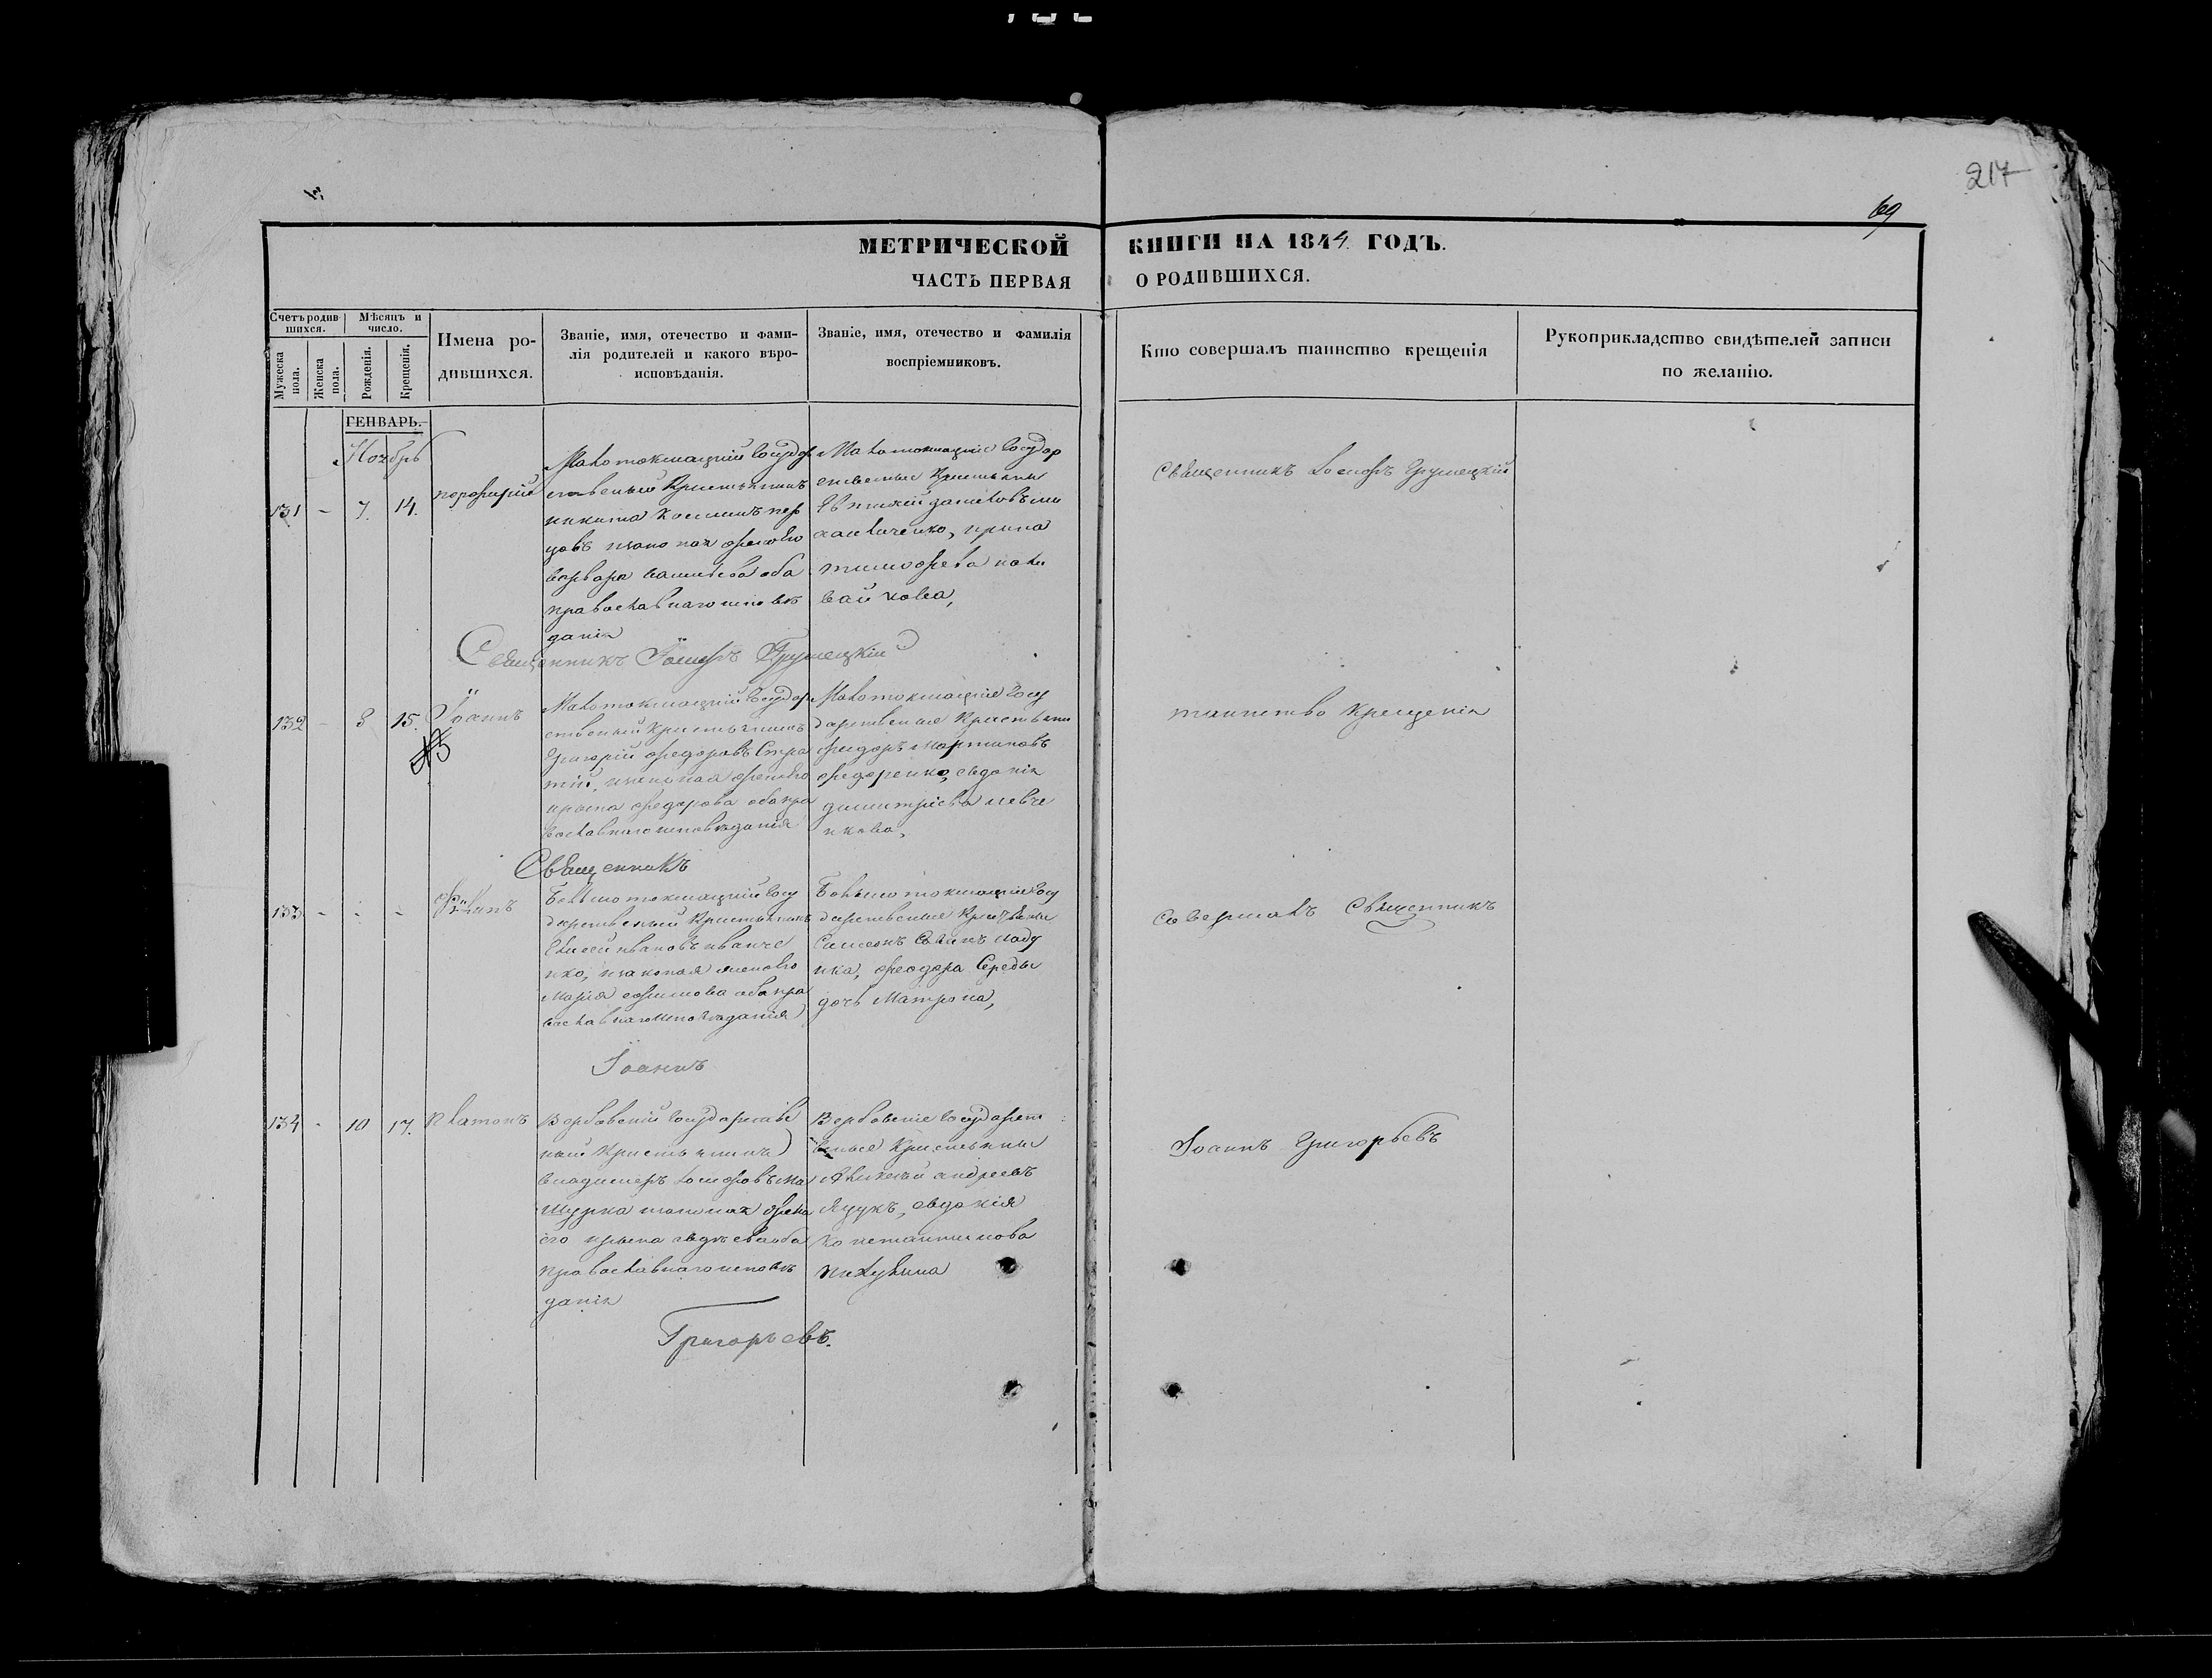 217
69
МЕТРИЧЕСКОЙ КНИГИ НА 1844 ГОДЪ.
ЧАСТЬ ПЕРВАЯ О РОДИВШИХСЯ.
Счетъ родившихся.
Мужеска пола.
Женска пола.
Мѣсяцъ и число.
Рожденія.
Крещенія.
Имена родившихся.
Званіе, имя, отечество и фамилія родителей и какого вѣроисповѣданія.
Званіе, имя, отечество и фамилія воспріемниковъ.
Кто совершалъ таинство крещенія
Рукоприкладство свидѣтелей записи по желанію.
ГЕНВАРЬ.
Ноябрь
131 - 7. 14. порфирій
Малотокмацкій Государ
ственый Крестьянинъ
никита
законная жена его
варвара
православнаго исповѣ
данія
Малотокмацкіе Государ
ственые Крестьяне
Евтихій даниловъ ми
хайличенко, ирина
тимофеева
Священникъ Іосифъ Грушецкій
Священникъ Іосифъ Грушецкій
132 - 8 15. Іоаннъ
Малотокмацкій Государ
ственый Крестьянинъ
Григорій федоровъ
ирина федорова оба пра
вославнаго исповѣданія
Малотокмацкіе Госу
дарственые Крестьяне
федоръ Мартиновъ
федоренко, евдокія
димитріева шевче
нкова,
таинство крещенія
Священникъ
133. - - -
Большотокмацкій Госу
дарственый Крестьянинъ
Елисей ивановъ иванче
нко, законая жена его
Марія ефимова оба пра
вославнаго исповѣданія
Большотокмацкіе Госу
дарственые Крестьяне
Симеонъ
феодора Середы
дочь Матрона,
совершалъ Священникъ
Іоаннъ
134 - 10 17. Платонъ
Вербовскій Государстве
ный Крестьянинъ
владимеръ іосифовъ Ма
шурка законая жена
его ирина
православнаго исповѣ
данія
Вербовскіе Государст
веные Крестьяне
Алиексій андреевъ
Яцукъ, евдокія
константинова
Іоаннъ Григорьевъ
Григорьевъ.